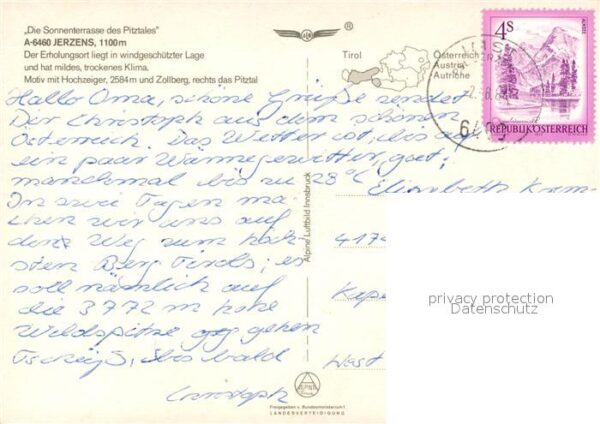 „Die Sonnenterrasse des Pitztales"
A-6460 JERZENS, 1100 m
Der Erholungsort liegt in windgeschützter Lage
und hat mildes, trockenes Klima.
Motiv mit Hochzeiger, 2584 m und Zollberg, rechts das Pitztal
®
Tirol
Österreich
Austria
Autriche
4 S
REPUBLIK ÖSTERREICH
Hallo Oma, schöne Grüße sendet
Dir Christoph aus dem schönen
Österreich. Das Wetter ist, bis auf
ein paar Wärmegewitter, gut;
manchmal bis zu 28°C
In zwei Tagen ma-
chen wir uns auf
den Weg zum höch-
sten Berg Tirols; es
soll nämlich auf
die 3772 m hohe
Wildspitze gehen
Tschüß, bis bald
Christoph
Alpine Luftbild Innsbruck
Elisabeth
West
privacy protection
Datenschutz
Freigegeben v. Bundesministerium f.
LANDESVERTEIDIGUNG